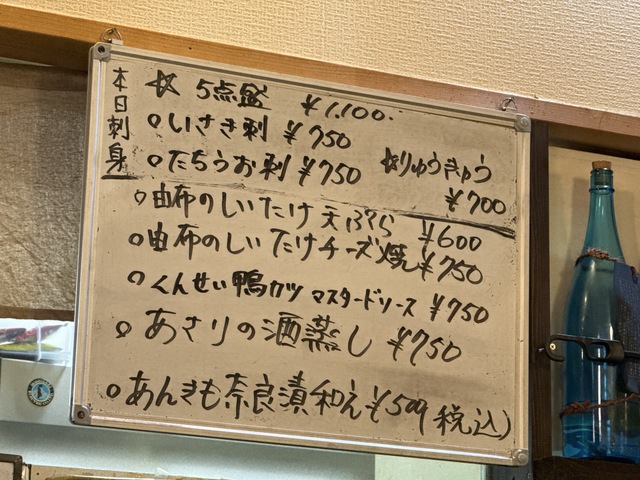 本日刺身
☆ 5点盛 ¥1,100.
○いさき刺 ¥750
○たちうお刺 ¥750
☆りゅうきゅう ¥700
○由布のしいたけ天ぷら ¥600
○由布のしいたけチーズ焼 ¥750
○くんせい鴨カツ マスタードソース ¥750
○あさりの酒蒸し ¥750
○あんきも奈良漬和え ¥500 税込)